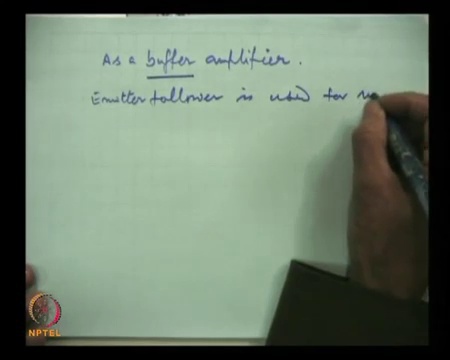 As a buffer amplifier.
Emitter follower is used for
NPTEL